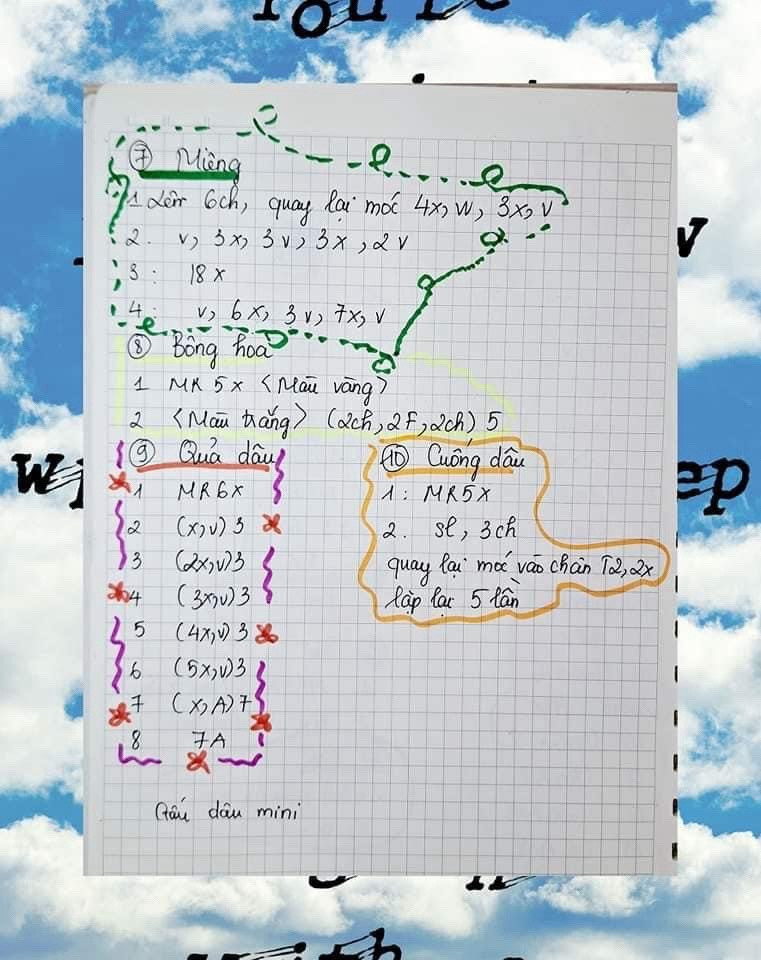 You're
⑦ Miệng
1 Lên 6ch, quay lại móc 4x, W, 3x, V
2. v, 3x, 3v, 3x, 2v
3: 18x
4: v, 6x, 3v, 7x, v
⑧ Bông hoa
1 MR 5x <Màu vàng>
2 <Màu trắng> (2ch, 2F, 2ch) 5
⑨ Quả dâu
1 MR6X
2 (x, v) 3
3 (2x, v) 3
4 (3x, v) 3
5 (4x, v) 3
6 (5x, v) 3
7 (x, A) 7
8 7A
⑩ Cuống dâu
1: MR5X
2. sl, 3ch
quay lại móc vào chân T2, 2x
lặp lại 5 lần
Gấu dâu mini